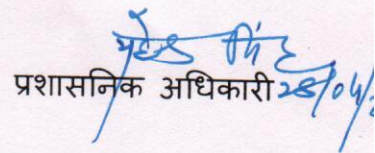 सिंह
प्रशासनिक अधिकारी 28/04/